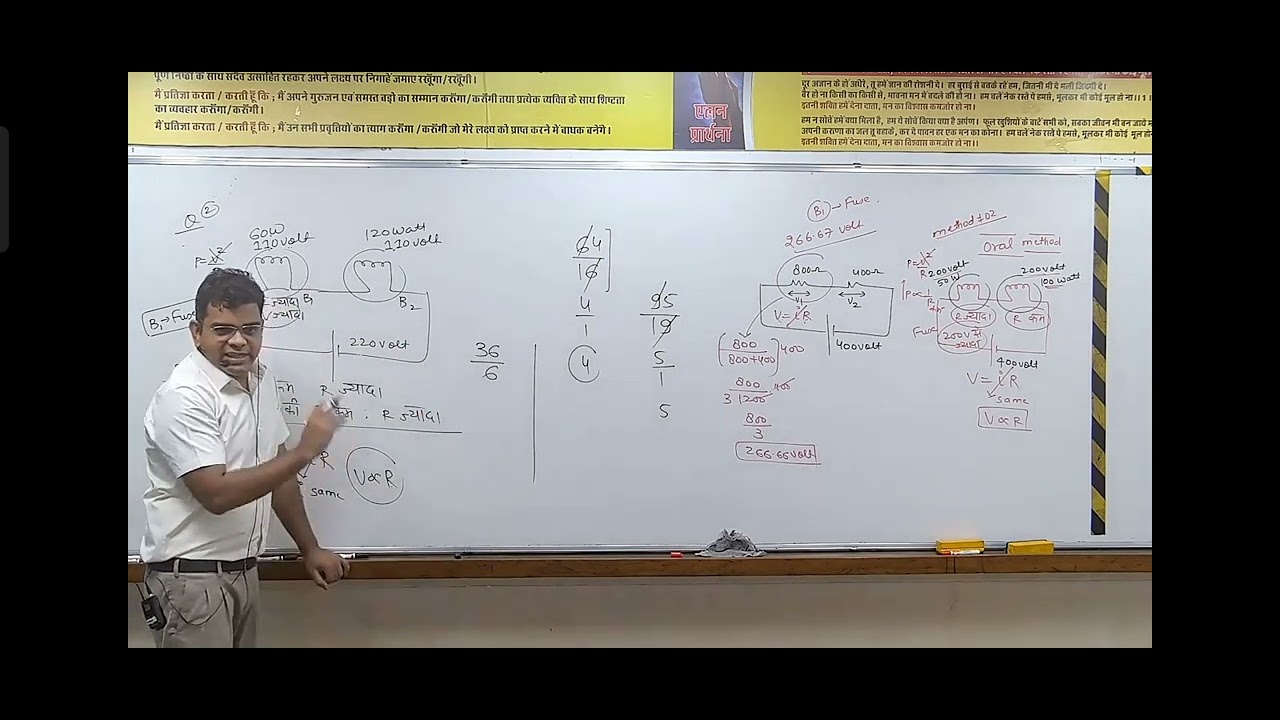 पूर्ण निष्ठा के साथ सदैव उत्साहित रहकर अपने लक्ष्य पर निगाहें जमाए रखूंगा/रखूंगी।
मैं प्रतिज्ञा करता / करती हूँ कि ; मैं अपने गुरुजन एवं समस्त बड़ों का सम्मान करूँगा/करूँगी तथा प्रत्येक व्यक्ति के साथ शिष्टता
का व्यवहार करूँगा/करूँगी।
मैं प्रतिज्ञा करता / करती हूँ कि ; मैं उन सभी प्रवृत्तियों का त्याग करूँगा / करूँगी जो मेरे लक्ष्य को प्राप्त करने में बाधक बनेंगे।
एलन
प्रार्थना
दूर अज्ञान के हों अंधेरे, तू हमें ज्ञान की रोशनी दे। हर बुराई से बचके रहें हम, जितनी भी दे भली ज़िंदगी दे।
बैर हो ना किसी का किसी से, भावना मन में बदले की हो ना। हम चलें नेक रस्ते पे हमसे, भूलकर भी कोई भूल हो ना।। 1 ।
इतनी शक्ति हमें देना दाता, मन का विश्वास कमजोर हो ना।
हम न सोचें हमें क्या मिला है, हम ये सोचें किया क्या है अर्पण। फूल खुशियों के बांटें सभी को, सबका जीवन भी बन जाये
अपनी करुणा का जल तू बहाके, कर दे पावन हर एक मन का कोना। हम चलें नेक रस्ते पे हमसे, भूलकर भी कोई भूल
इतनी शक्ति हमें देना दाता, मन का विश्वास कमजोर हो ना।।
Q ②
60W
110volt
120watt
110volt
B1
B2
ज्यादा
ज्यादा
B1→Fuse
220volt
R ज्यादा
कम : R ज्यादा
same
V∝R
36
6
64
16
4
1
4
95
19
5
1
5
B1→Fuse.
266.67 volt
800Ω
400Ω
V1
V2
V=iR
400volt
800
800+400
400
800
3 1200
400
800
3
266.66volt
method #02
Oral method
200volt
50W
200volt
100watt
R ज्यादा
R कम
Fuse
200V से
ज्यादा
400volt
V=iR
same
V∝R